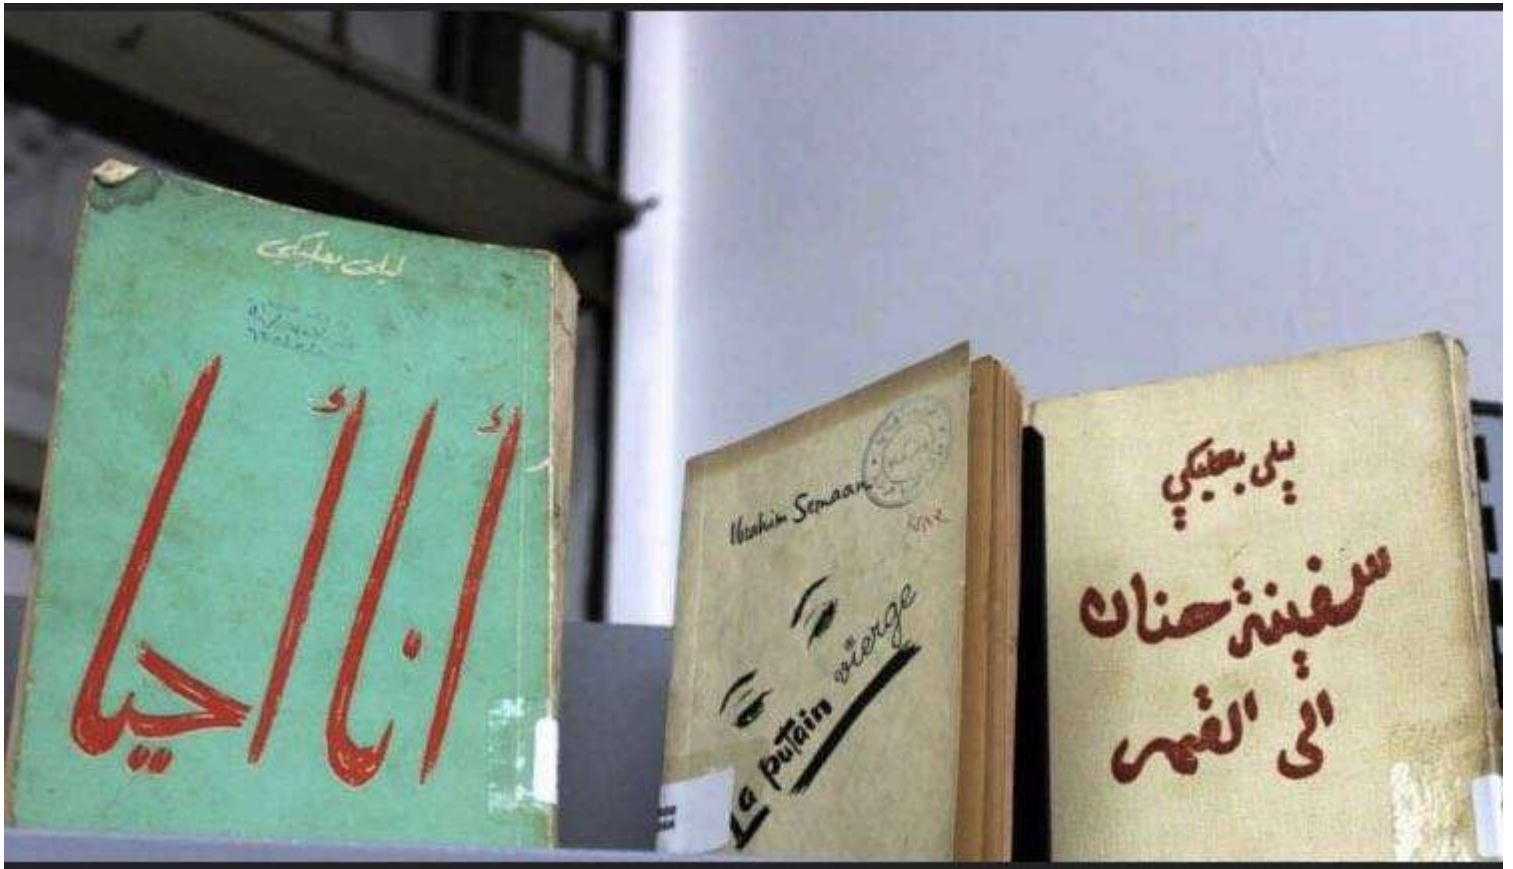 ليلى بعلبكي
أنا أحيا
Ibrahim Semaan
La putain vierge
ليلى بعلبكي
سفينة حنان
الى القمر